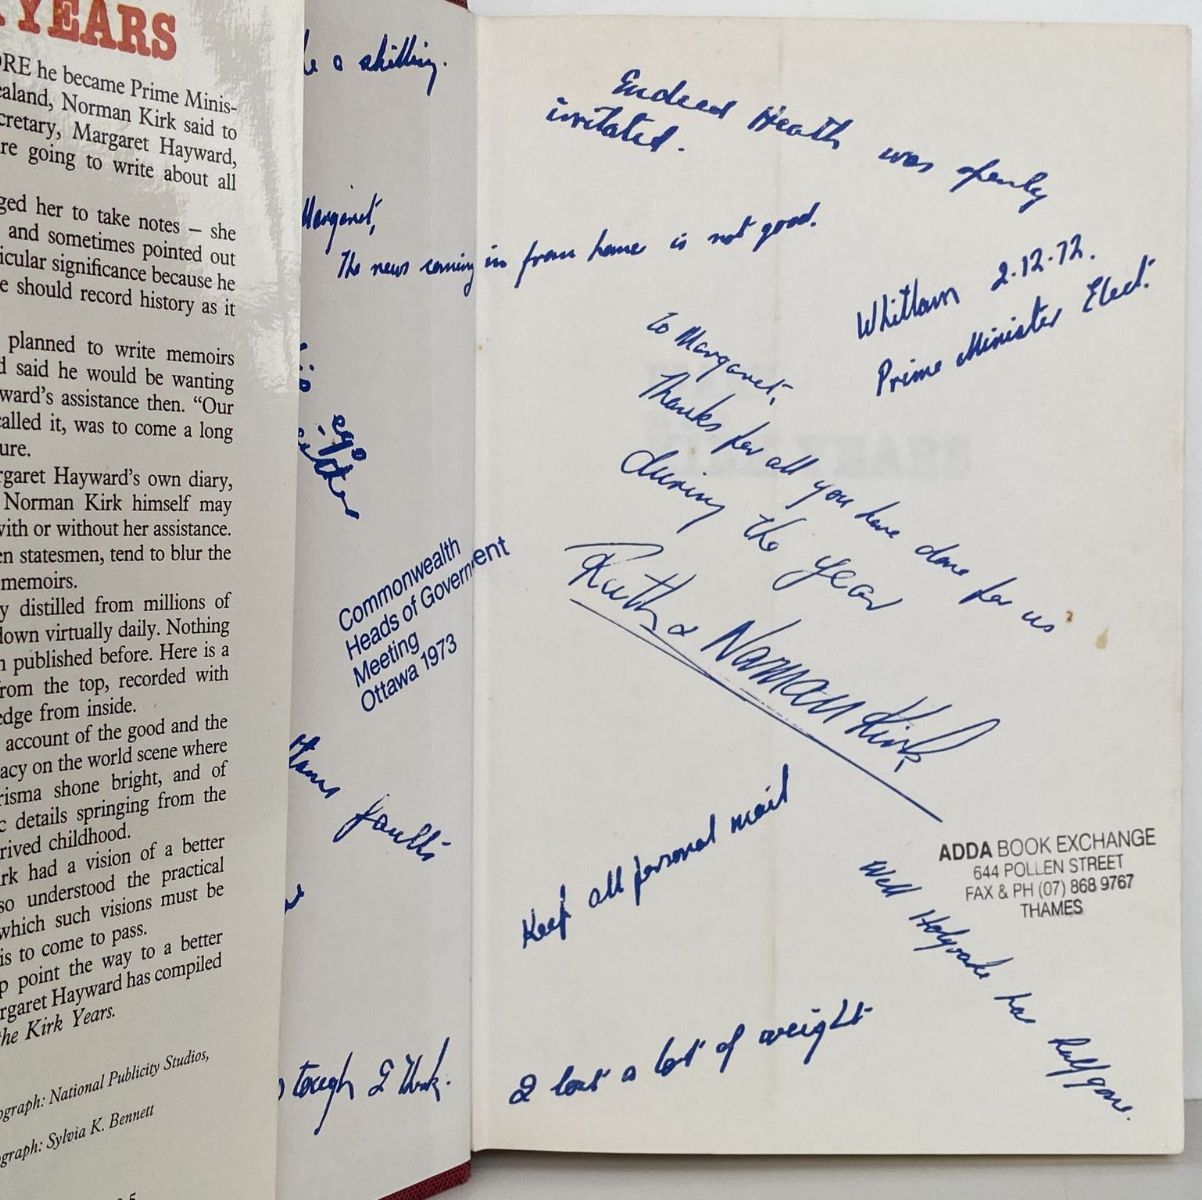 YEARS
ORE he became Prime Minis-
aland, Norman Kirk said to
cretary, Margaret Hayward,
re going to write about all
ged her to take notes – she
and sometimes pointed out
icular significance because he
e should record history as it
planned to write memoirs
d said he would be wanting
ward's assistance then. "Our
called it, was to come a long
ure.
rgaret Hayward's own diary,
Norman Kirk himself may
with or without her assistance.
en statesmen, tend to blur the
memoirs.
y distilled from millions of
down virtually daily. Nothing
n published before. Here is a
from the top, recorded with
edge from inside.
account of the good and the
acy on the world scene where
risma shone bright, and of
c details springing from the
rived childhood.
rk had a vision of a better
so understood the practical
which such visions must be
is to come to pass.
p point the way to a better
rgaret Hayward has compiled
he Kirk Years.
ograph: National Publicity Studios,
graph: Sylvia K. Bennett
a shilling.
Margaret,
The news coming in from home is not good.
ego
Commonwealth
Heads of Government
Meeting
Ottawa 1973
faults
tough I think.
Indeed Heath was openly
irritated.
Whitlam 2.12.72.
Prime Minister Elect.
To Margaret,
Thanks for all you have done for us
during the year
Ruth & Norman Kirk
Keep all personal mail
ADDA BOOK EXCHANGE
644 POLLEN STREET
FAX & PH (07) 868 9767
THAMES
Well Holyoake has half gone.
I lost a lot of weight